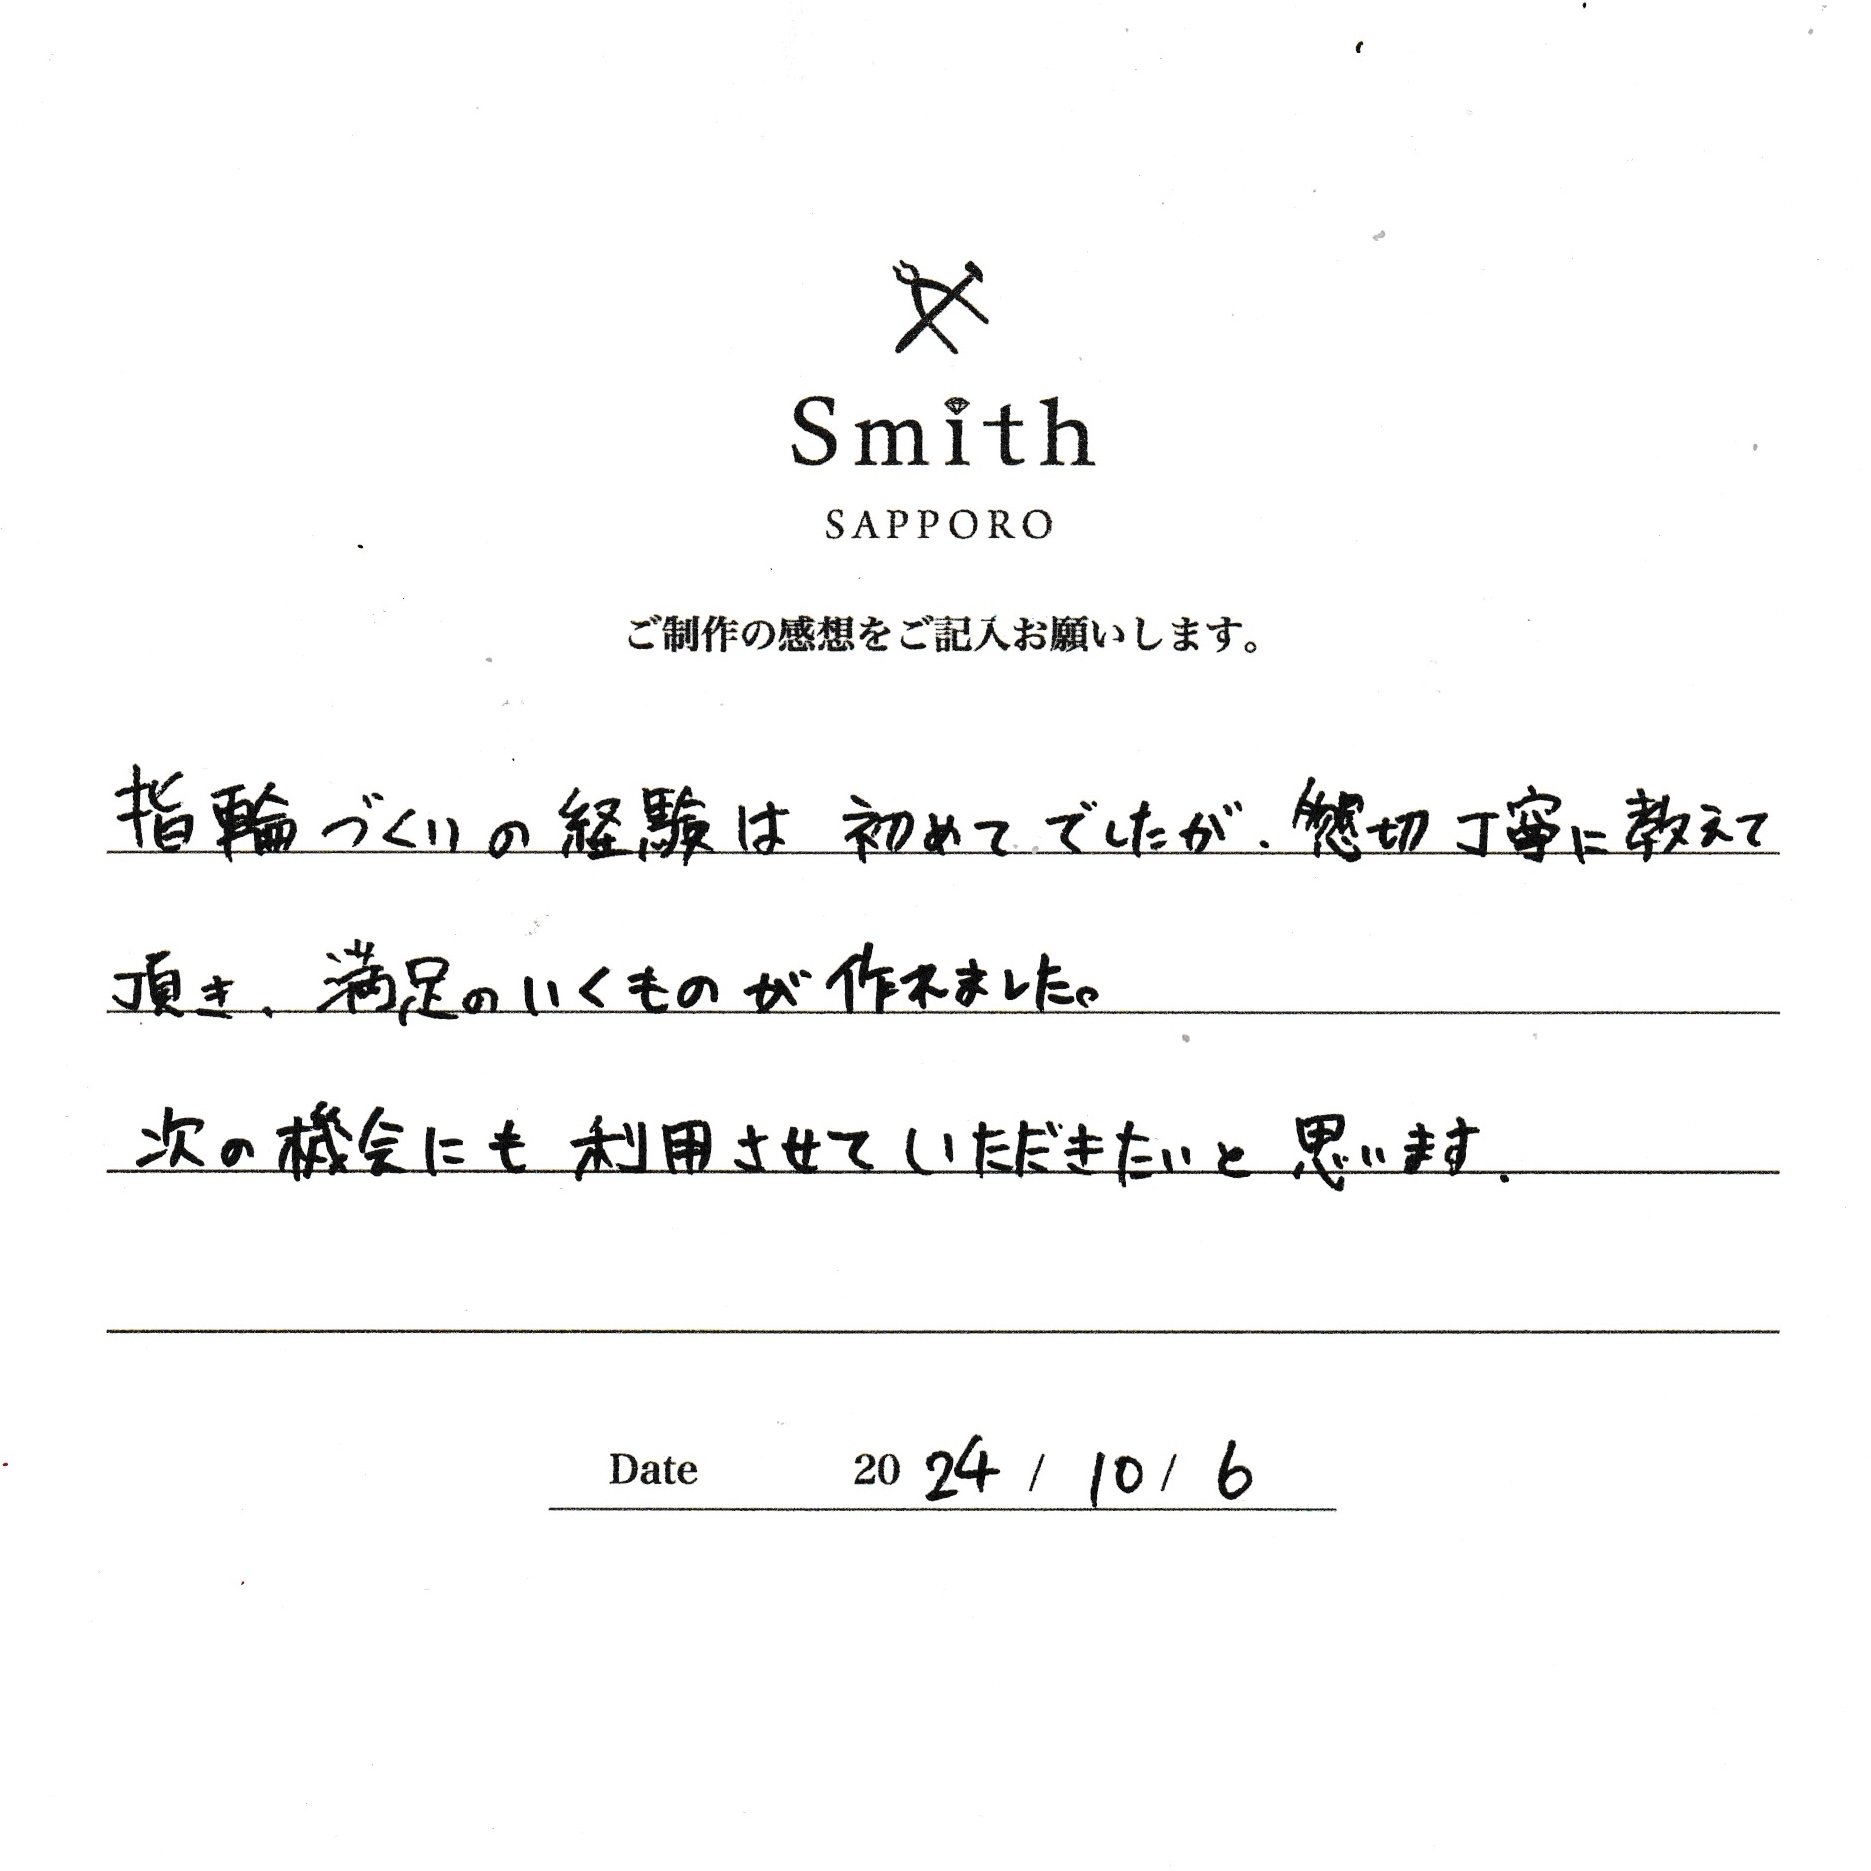 Smith
SAPPORO
ご制作の感想をご記入お願いします。
指輪づくりの経験は初めてでしたが、懇切丁寧に教えて
頂き、満足のいくものが作れました。
次の機会にも利用させていただきたいと思います.
Date 2024 / 10 / 6